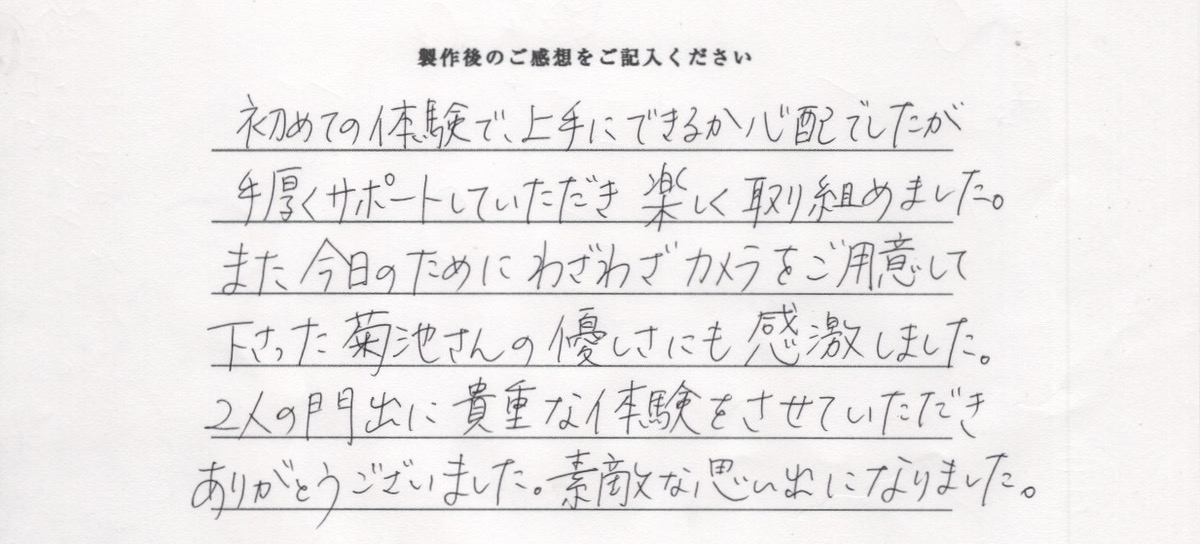 製作後のご感想をご記入ください
初めての体験で、上手にできるか心配でしたが
手厚くサポートしていただき 楽しく取り組めました。
また今日のために わざわざ カメラをご用意して
下さった菊池さんの優しさにも感激しました。
2人の門出に貴重な体験をさせていただき
ありがとうございました。素敵な思い出になりました。